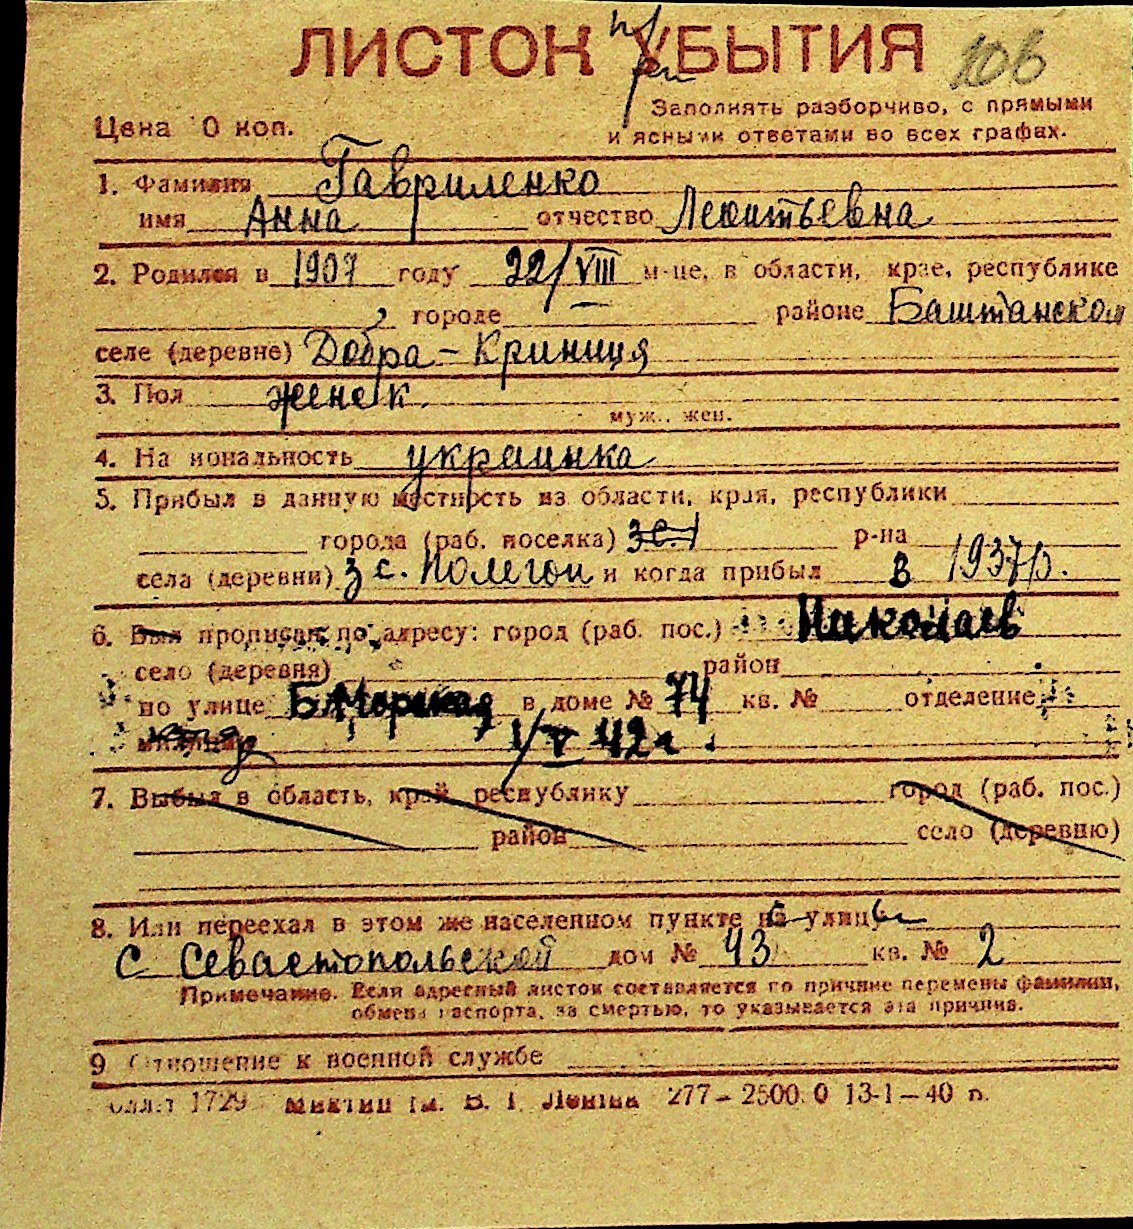 ЛИСТОК УБЫТИЯ
при
106
Заполнять разборчиво, с прямыми
и ясными ответами во всех графах.
Цена 0 коп.
1. Фамилия Гавриленко
имя Анна отчество Леонтьевна
2. Родился в 1907 году 22/VIII м-це, в области, крае, республике
городе районе Баштанском
селе (деревне) Добра-Криниця
3. Пол женск.
муж., жен.
4. Национальность украинка
5. Прибыл в данную местность из области, края, республики
города (раб. поселка) р-на
села (деревни) з с. и когда прибыл в 1937 р.
6. Был прописан по адресу: город (раб. пос.) Николаев
село (деревня) район
по улице Б Морская в доме № 74 кв. № отделение
милиции 1/V 42 г.
7. Выбыл в область, край, республику город (раб. пос.)
район село (деревню)
8. Или переехал в этом же населенном пункте на улицы
с Севастопольской дом № 43 кв. № 2
Примечание. Если адресный листок составляется по причине перемены фамилии,
обмена паспорта, за смертью, то указывается эта причина.
9 Отношение к военной службе
1729 277–2500.0 13-1–40 п.